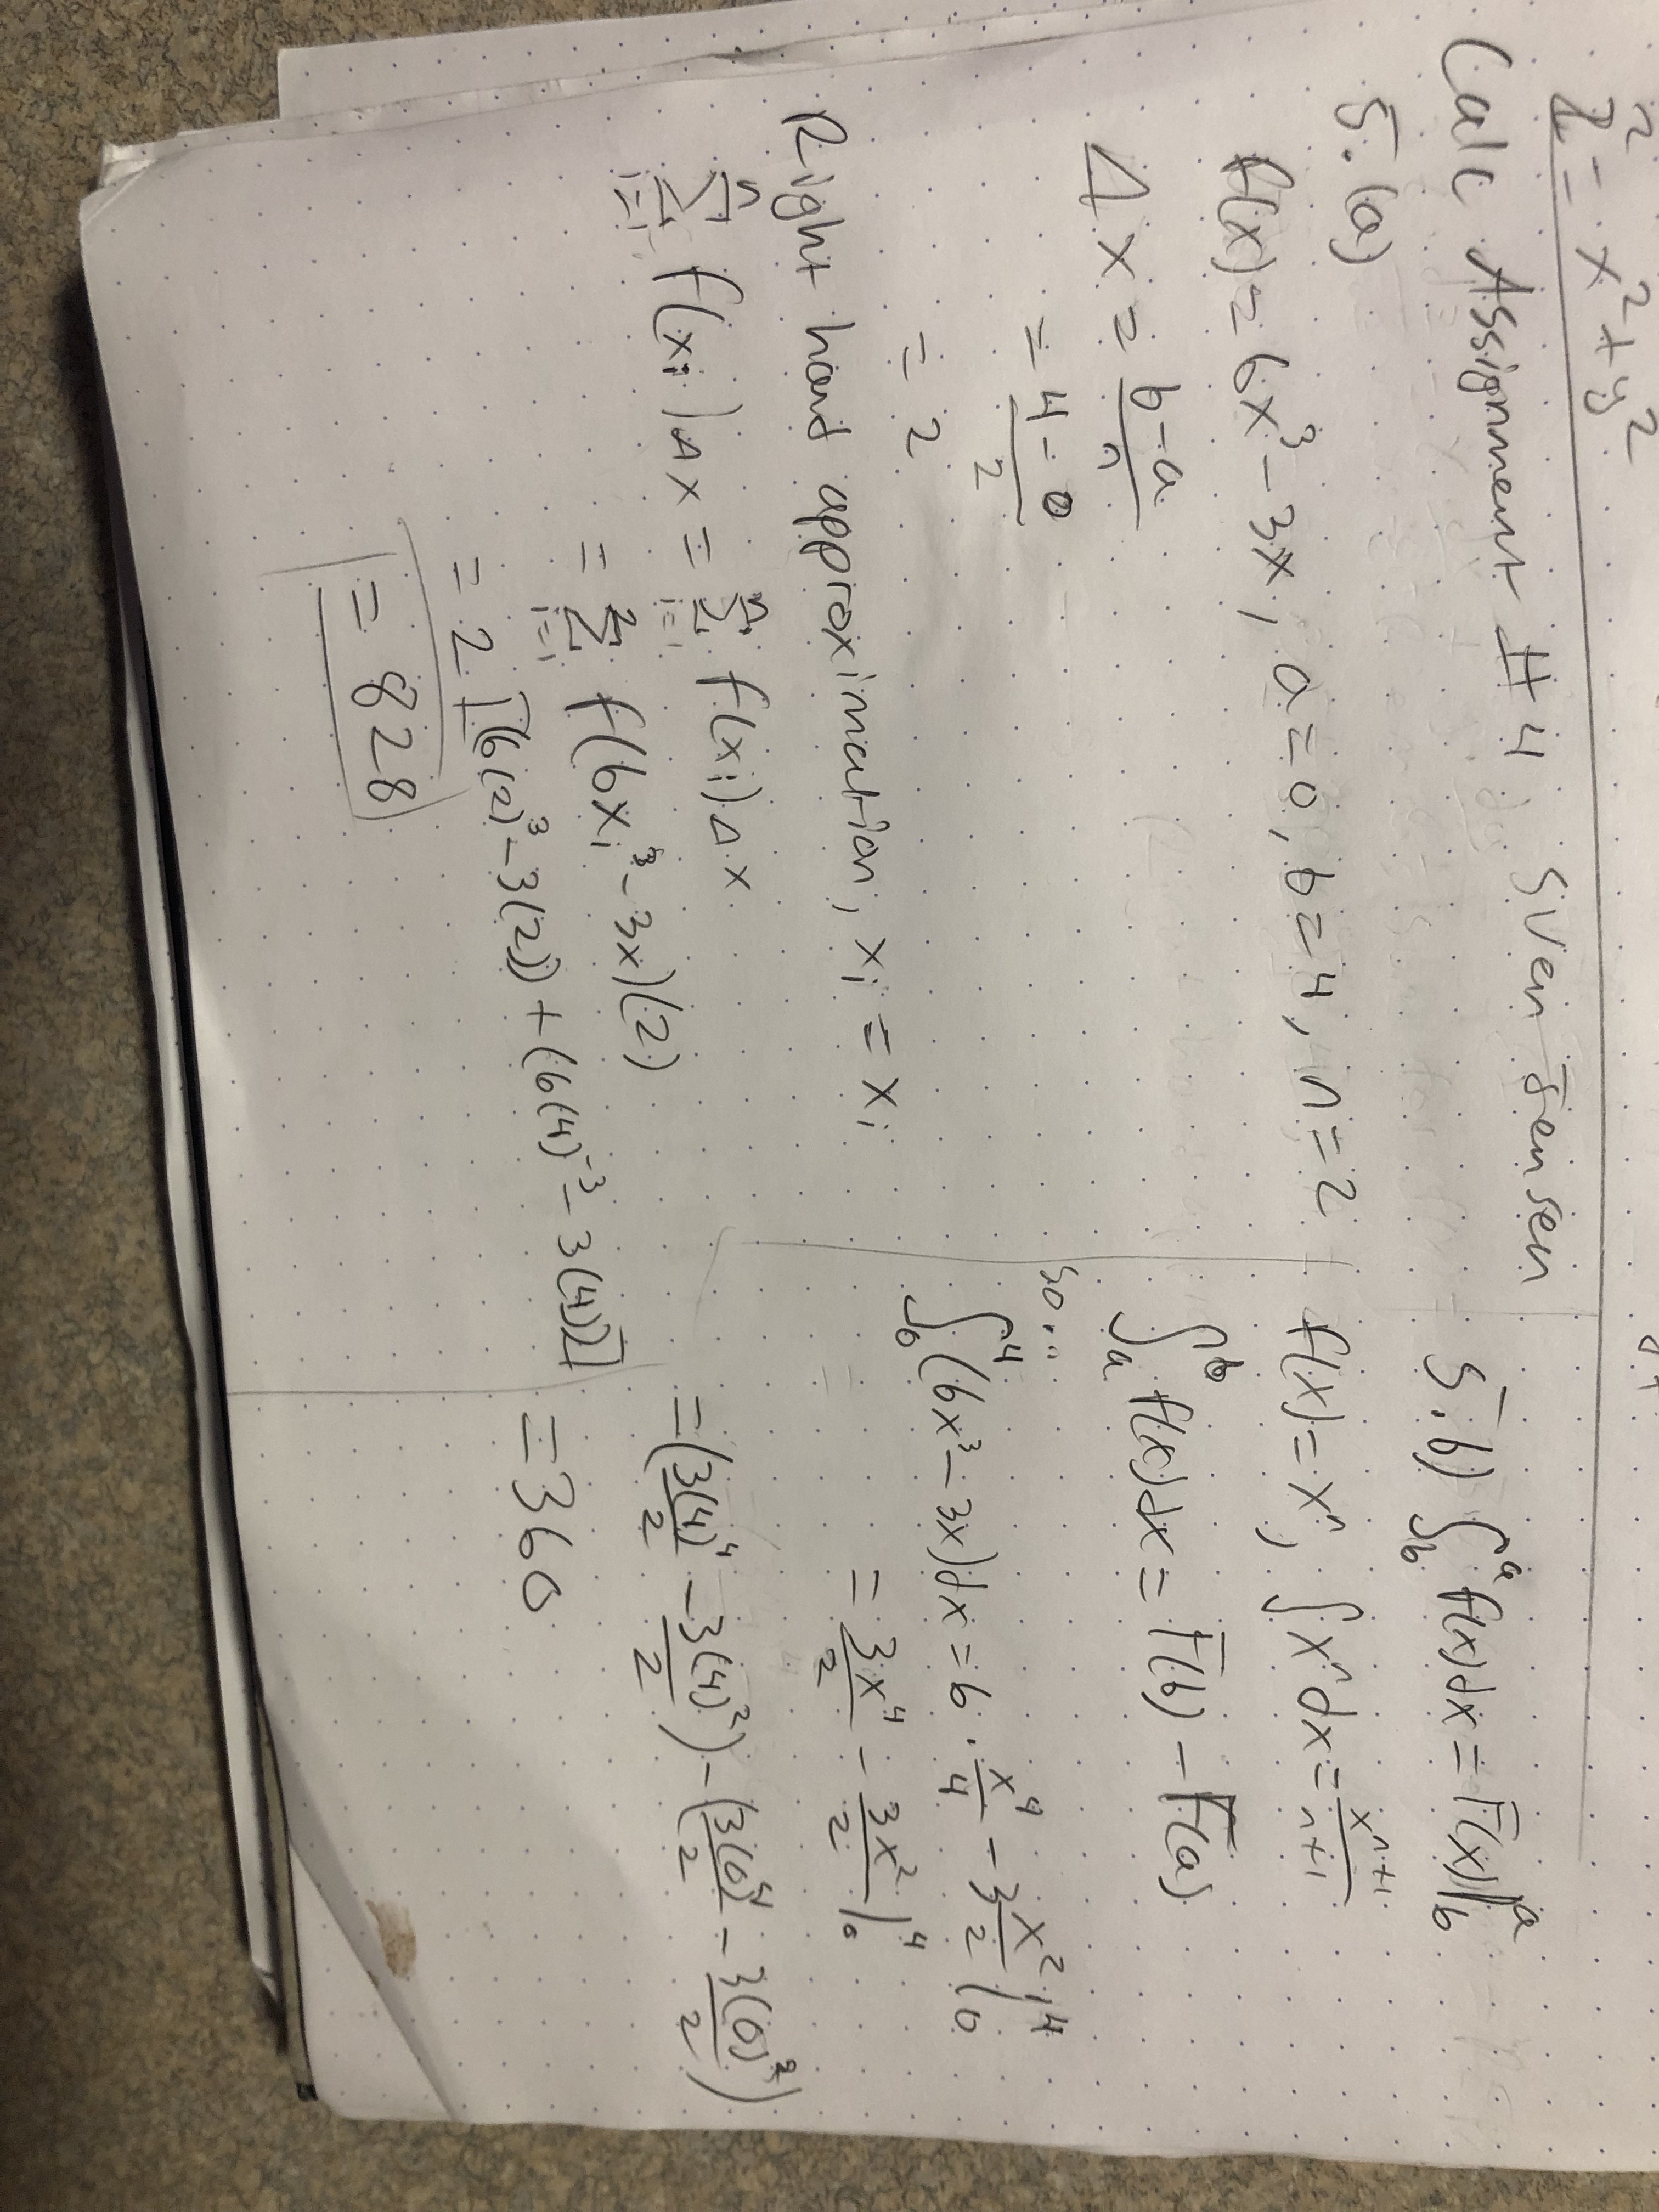 z² = x² + y²
Calc Assignment #4 Sven Jensen
5. (a)
f(x) = 6x³ - 3x, a = 0, b = 4, n = 2
Δx = b - a / n
= 4 - 0 / 2
= 2
Right hand approximation, xᵢ = xᵢ
n Σ i=1 f(xᵢ) Δx = n Σ i=1 f(xᵢ) Δx
= 2 Σ i=1 f(6xᵢ³ - 3x)(2)
= 2 [(6(2)³ - 3(2)) + (6(4)³ - 3(4))]
= 828
5. b) ∫ᵃ_b f(x)dx = F(x)|ᵃ_b
f(x) = xⁿ, ∫xⁿdx = xⁿ⁺¹ / n+1
∫ᵇ_a f(x)dx = F(b) - F(a)
so...
∫⁴_0 (6x³ - 3x)dx = 6 · x⁴/4 - 3 x²/2 |⁴_0
= 3x⁴/2 - 3x²/2 |⁴_0
= (3(4)⁴/2 - 3(4)²/2) - (3(0)⁴/2 - 3(0)²/2)
= 360